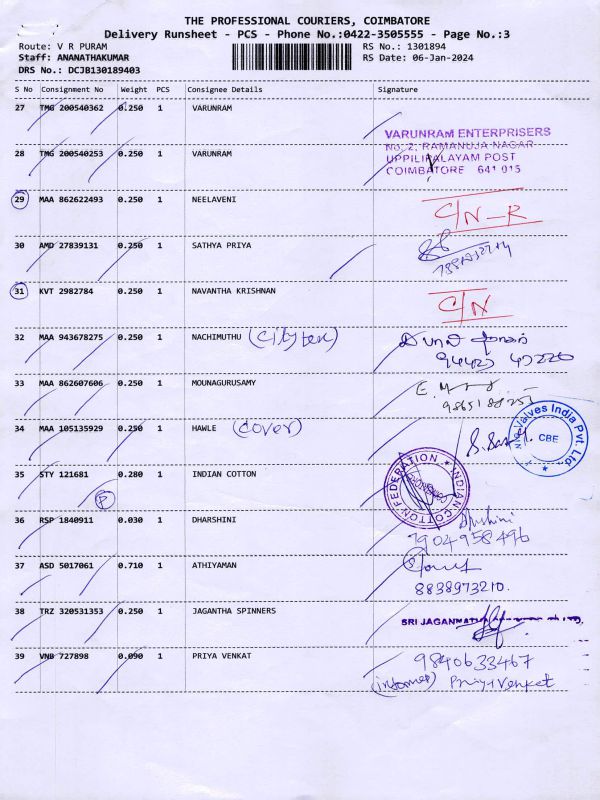 THE PROFESSIONAL COURIERS, COIMBATORE
Delivery Runsheet - PCS - Phone No.:0422-3505555 - Page No.:3
Route: V R PURAM RS No.: 1301894
Staff: ANANATHAKUMAR RS Date: 06-Jan-2024
DRS No.: DCJB130189403
S No Consignment No Weight PCS Consignee Details Signature
27 TMG 200540362 0.250 1 VARUNRAM
VARUNRAM ENTERPRISERS
No. 2, RAMANUJA NAGAR
28 TMG 200540253 0.250 1 VARUNRAM
UPPILIPALAYAM POST
COIMBATORE 641 015
29 MAA 862622493 0.250 1 NEELAVENI C/N-R
30 AMD 27839131 0.250 1 SATHYA PRIYA
31 KVT 2982784 0.250 1 NAVANTHA KRISHNAN C/N
32 MAA 943678275 0.250 1 NACHIMUTHU
33 MAA 862607606 0.250 1 MOUNAGURUSAMY
34 MAA 105135929 0.250 1 HAWLE (cover)
Valves India Pvt. Ltd.
CBE
35 STY 121681 0.280 1 INDIAN COTTON
INDIAN COTTON FEDERATION
P
36 RSP 1840911 0.030 1 DHARSHINI
7904958496
37 ASD 5017061 0.710 1 ATHIYAMAN
8838973210.
38 TRZ 320531353 0.250 1 JAGANTHA SPINNERS
SRI JAGANNATHA
39 VNB 727898 0.090 1 PRIYA VENKAT 9840633467
Priya Venket